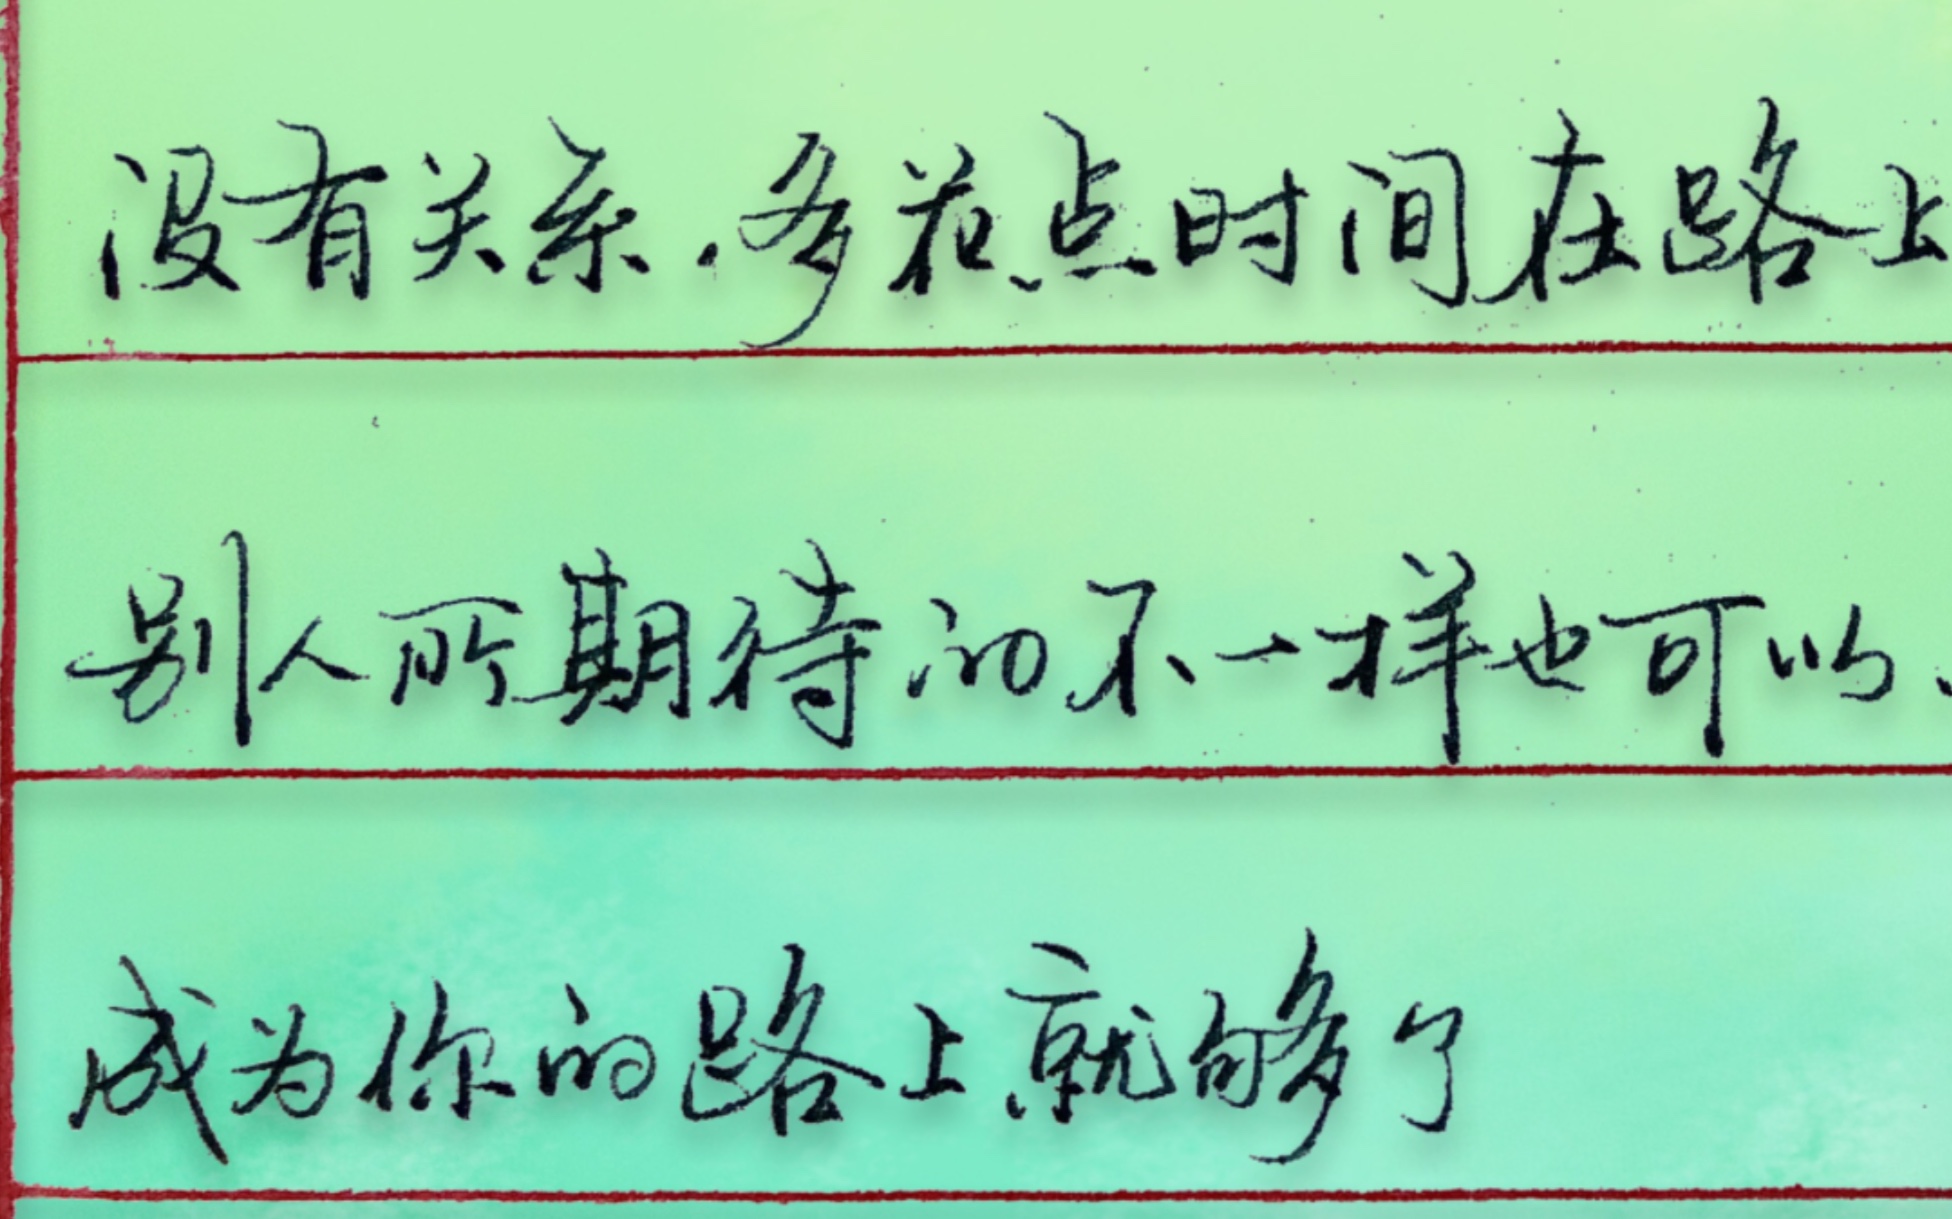 没有关系，多花点时间在路上
别人所期待的不一样也可以、
成为你的路上就够了